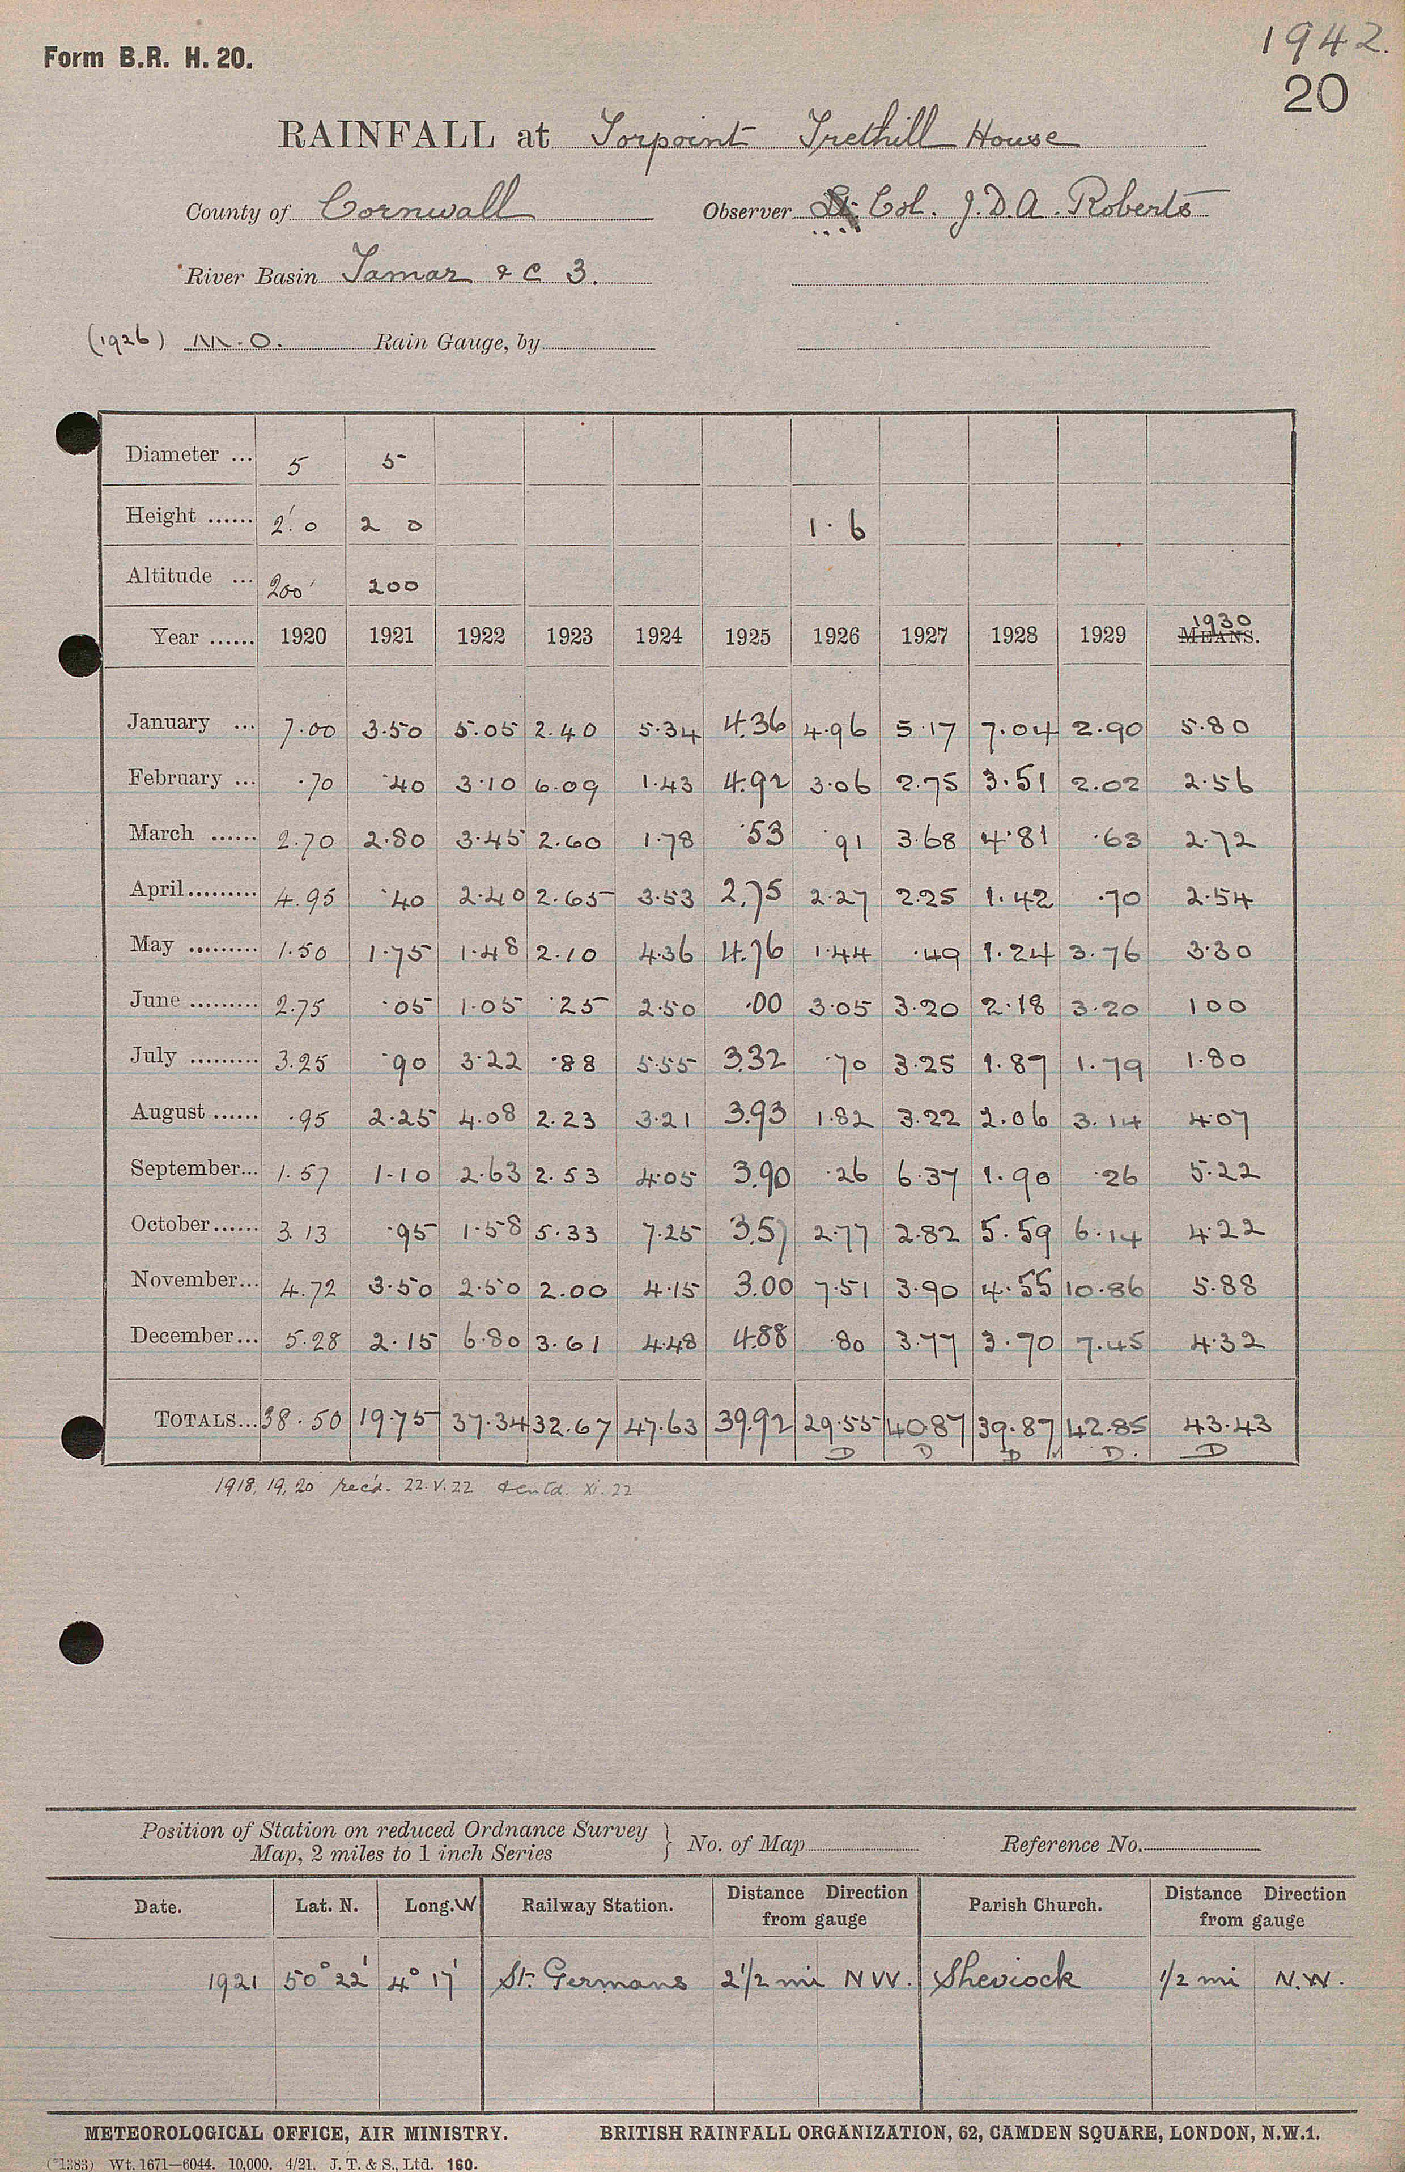 1942.
Form B.R. H. 20.
20
RAINFALL at Torpoint Trethill House
County of Cornwall Observer Lt. Col. J.D.A. Roberts
River Basin Tamar & C 3.
(1926) M.O. Rain Gauge, by
Diameter ... 5 5
Height ...... 2'.0 2 0 1·6
Altitude ... 200' 200
Year ...... 1920 1921 1922 1923 1924 1925 1926 1927 1928 1929 MEANS. 1930
January ... 7.00 3·50 5.05 2.40 5·34 4.36 4·96 5·17 7.04 2.90 5·80
February ... ·70 ·40 3·10 6.09 1·43 4.92 3·06 2.75 3.51 2.02 2·56
March ...... 2.70 2·80 3·45 2.60 1·78 ·53 ·91 3.68 4·81 ·63 2.72
April......... 4.95 ·40 2·40 2.65 3·53 2.75 2·27 2·25 1.42 ·70 2·54
May ......... 1.50 1·75 1·48 2.10 4·36 4.76 1·44 ·49 1.24 3.76 3·30
June ......... 2.75 ·05 1·05 ·25 2·50 ·00 3·05 3.20 2·18 3.20 100
July ......... 3.25 ·90 3·22 ·88 5·55 3.32 ·70 3·25 1.87 1.79 1·80
August ...... ·95 2·25 4·08 2.23 3·21 3.93 1·82 3.22 2.06 3.14 4·07
September... 1.57 1·10 2·63 2.53 4·05 3.90 ·26 6·37 1.90 ·26 5·22
October...... 3.13 ·95 1·58 5.33 7·25 3.57 2·77 2·82 5.59 6.14 4·22
November... 4.72 3·50 2·50 2.00 4·15 3.00 7·51 3.90 4.55 10.86 5·88
December... 5.28 2·15 6·80 3.61 4·48 4.88 ·80 3.77 3.70 7.45 4·32
TOTALS... 38.50 19·75 37·34 32.67 47·63 39.92 29·55 40.87 39.87 42.85 43·43
D D D D. D
1918, 19, 20 rec'd. 22.V.22 & entd. XI.22
Position of Station on reduced Ordnance Survey
Map, 2 miles to 1 inch Series } No. of Map Reference No.
Date. Lat. N. Long. W Railway Station. Distance Direction from gauge Parish Church. Distance Direction from gauge
1921 50° 22' 4° 17' St. Germans 2 1/2 mi NW. Sheviock 1/2 mi N.W.
METEOROLOGICAL OFFICE, AIR MINISTRY. BRITISH RAINFALL ORGANIZATION, 62, CAMDEN SQUARE, LONDON, N.W.1.
(*1383) Wt. 1671—6044. 10,000. 4/21. J. T. & S., Ltd. 160.